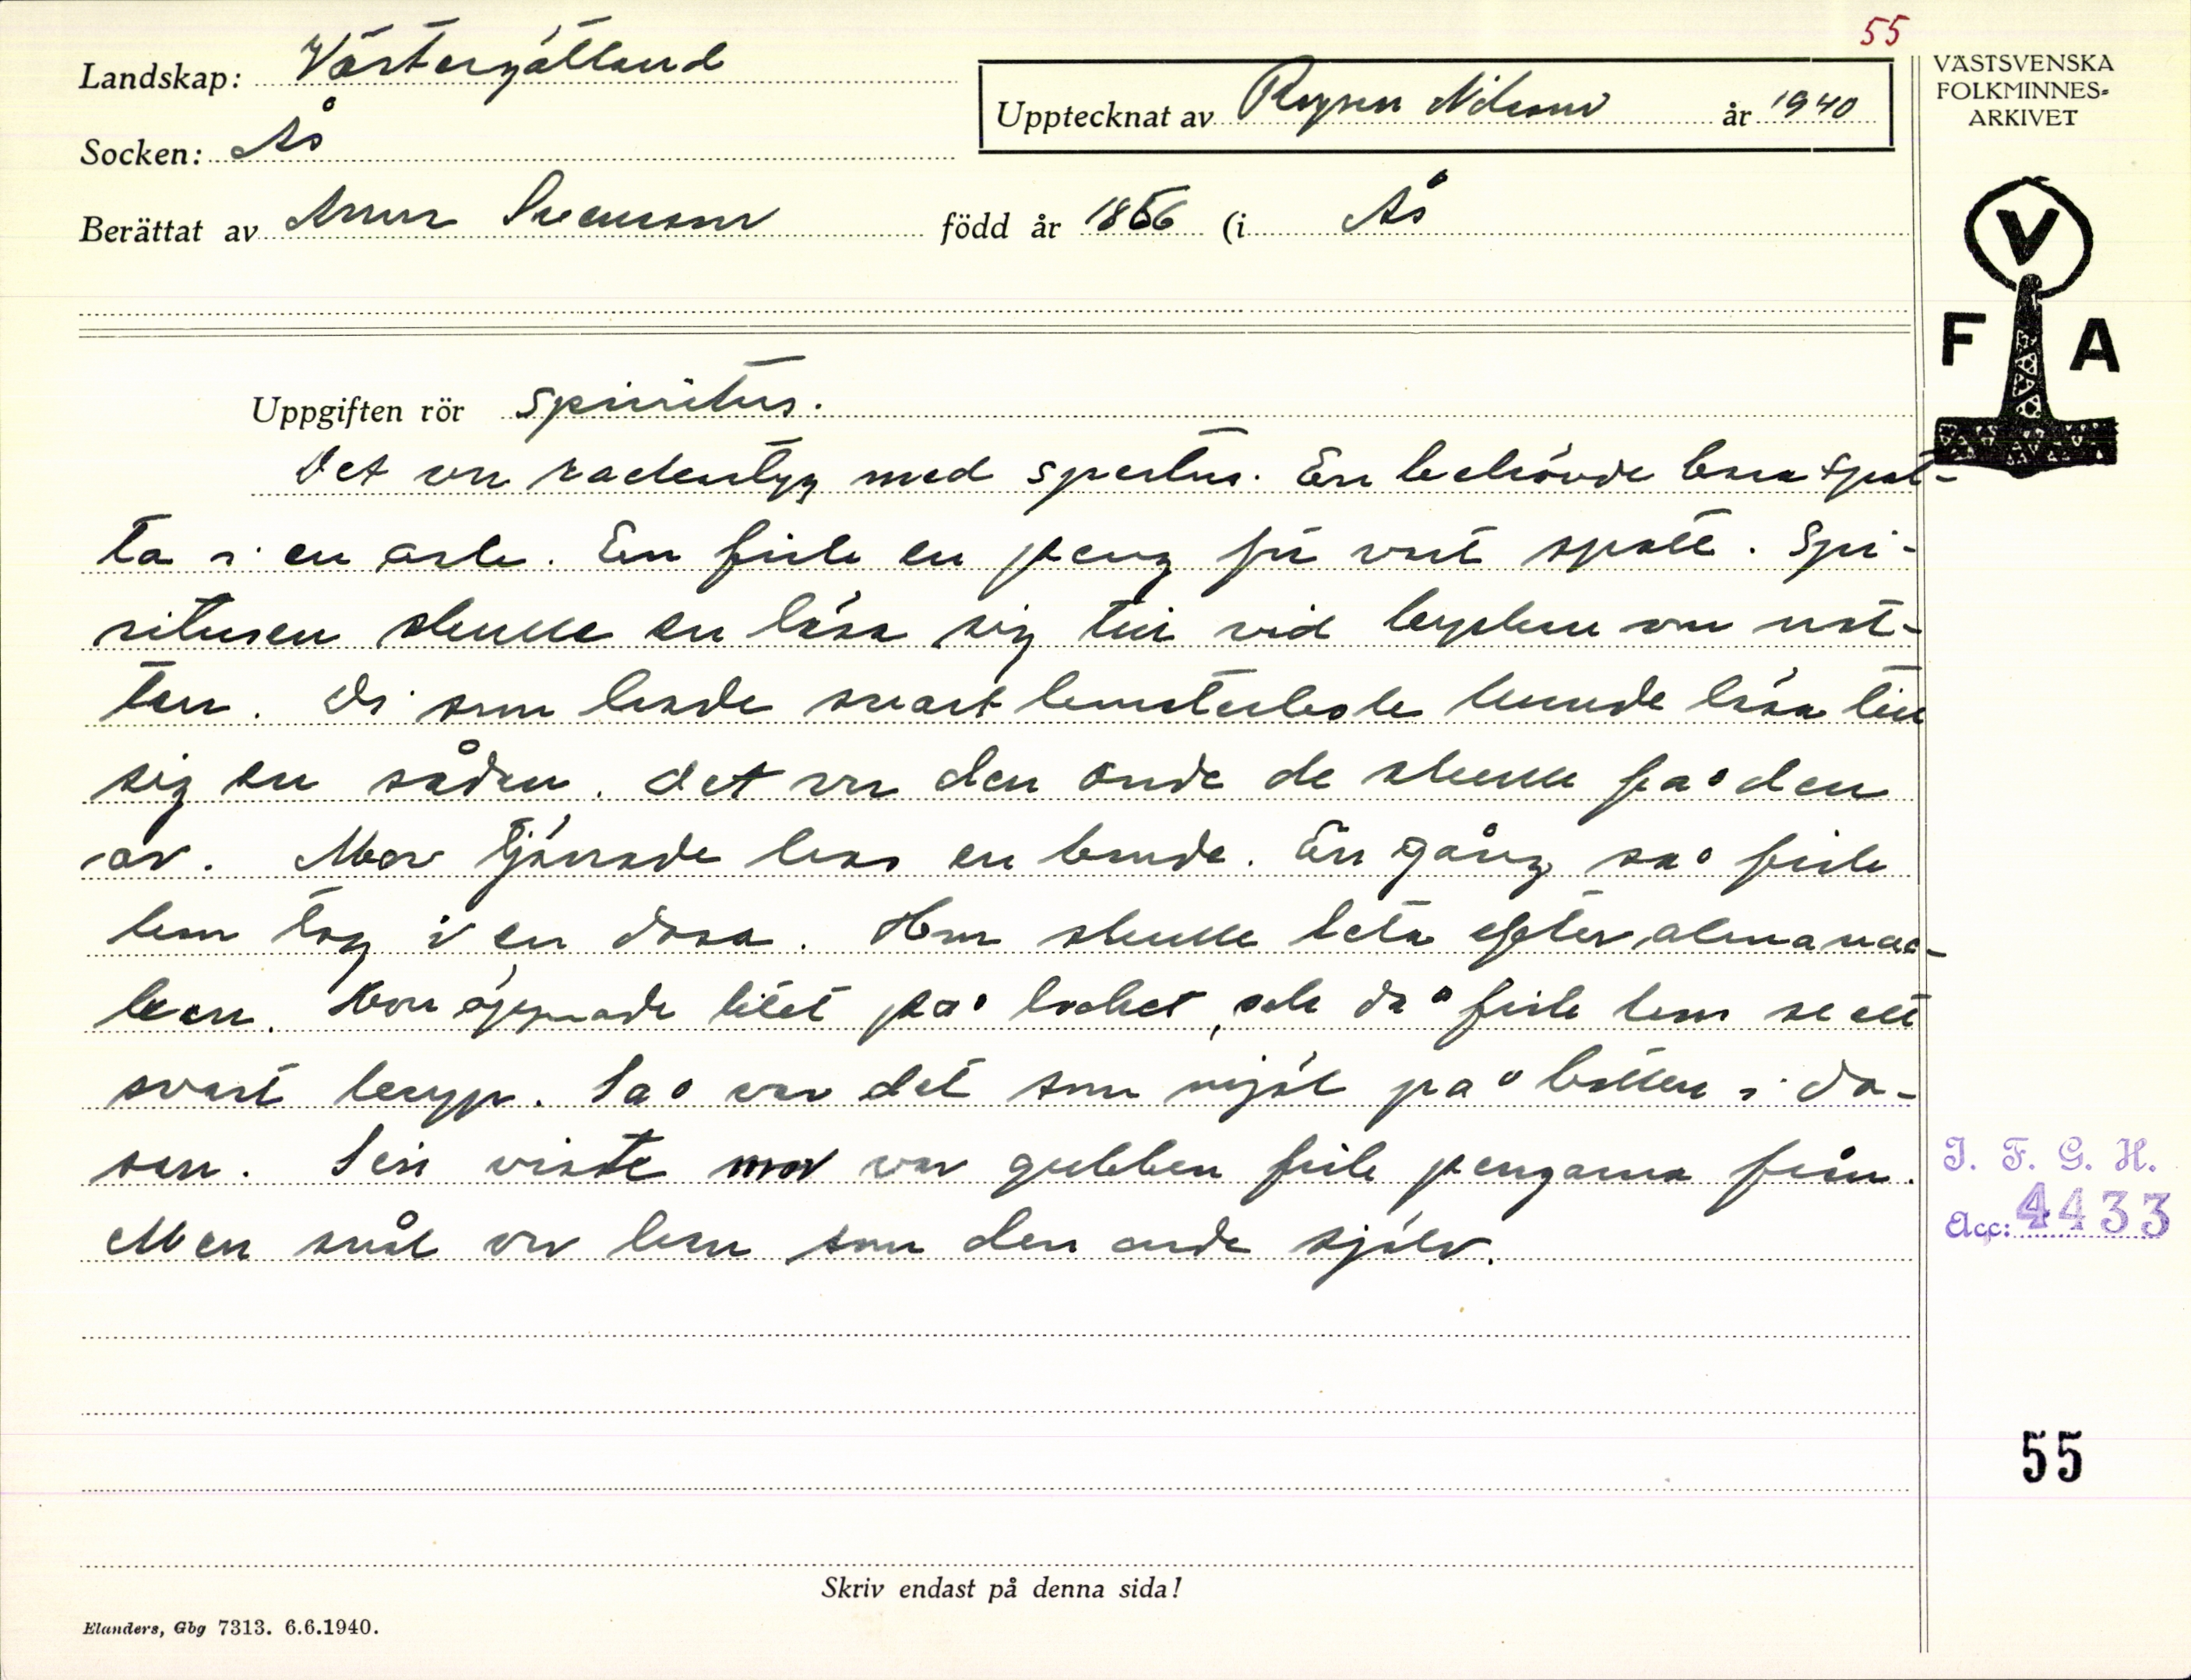 55
Landskap: Västergötland
Socken: Ås
Upptecknat av Ragnar Nilsson år 1940
VÄSTSVENSKA
FOLKMINNES-
ARKIVET
Berättat av Anna Svensson född år 1856 (i Ås
V
F A
Uppgiften rör Spiritus.
Det var satentyg med spertus. En behövde bara spot-
ta i en ask. En fick en peng för vart spott. Spi-
ritusen skulle en läsa sig till vid kyrkan om nat-
ten. Di som hade svartkonstbok kunde läsa till
sig en sådan. Det var den onde de skulle få den
av. Mor tjänade hos en bonde. En gång så fick
hon tag i en dosa. Hon skulle leta efter almanac-
kan. Hon öppnade litet på locket, och då fick hon se ett
svart kryp. Så var det som mjöl på botten i do-
san. Sen visste mor var gubben fick pengarna från.
Men snål var han som den onde själv.
I. F. G. H.
Acc: 4433
55
Skriv endast på denna sida!
Elanders, Gbg 7313. 6.6.1940.